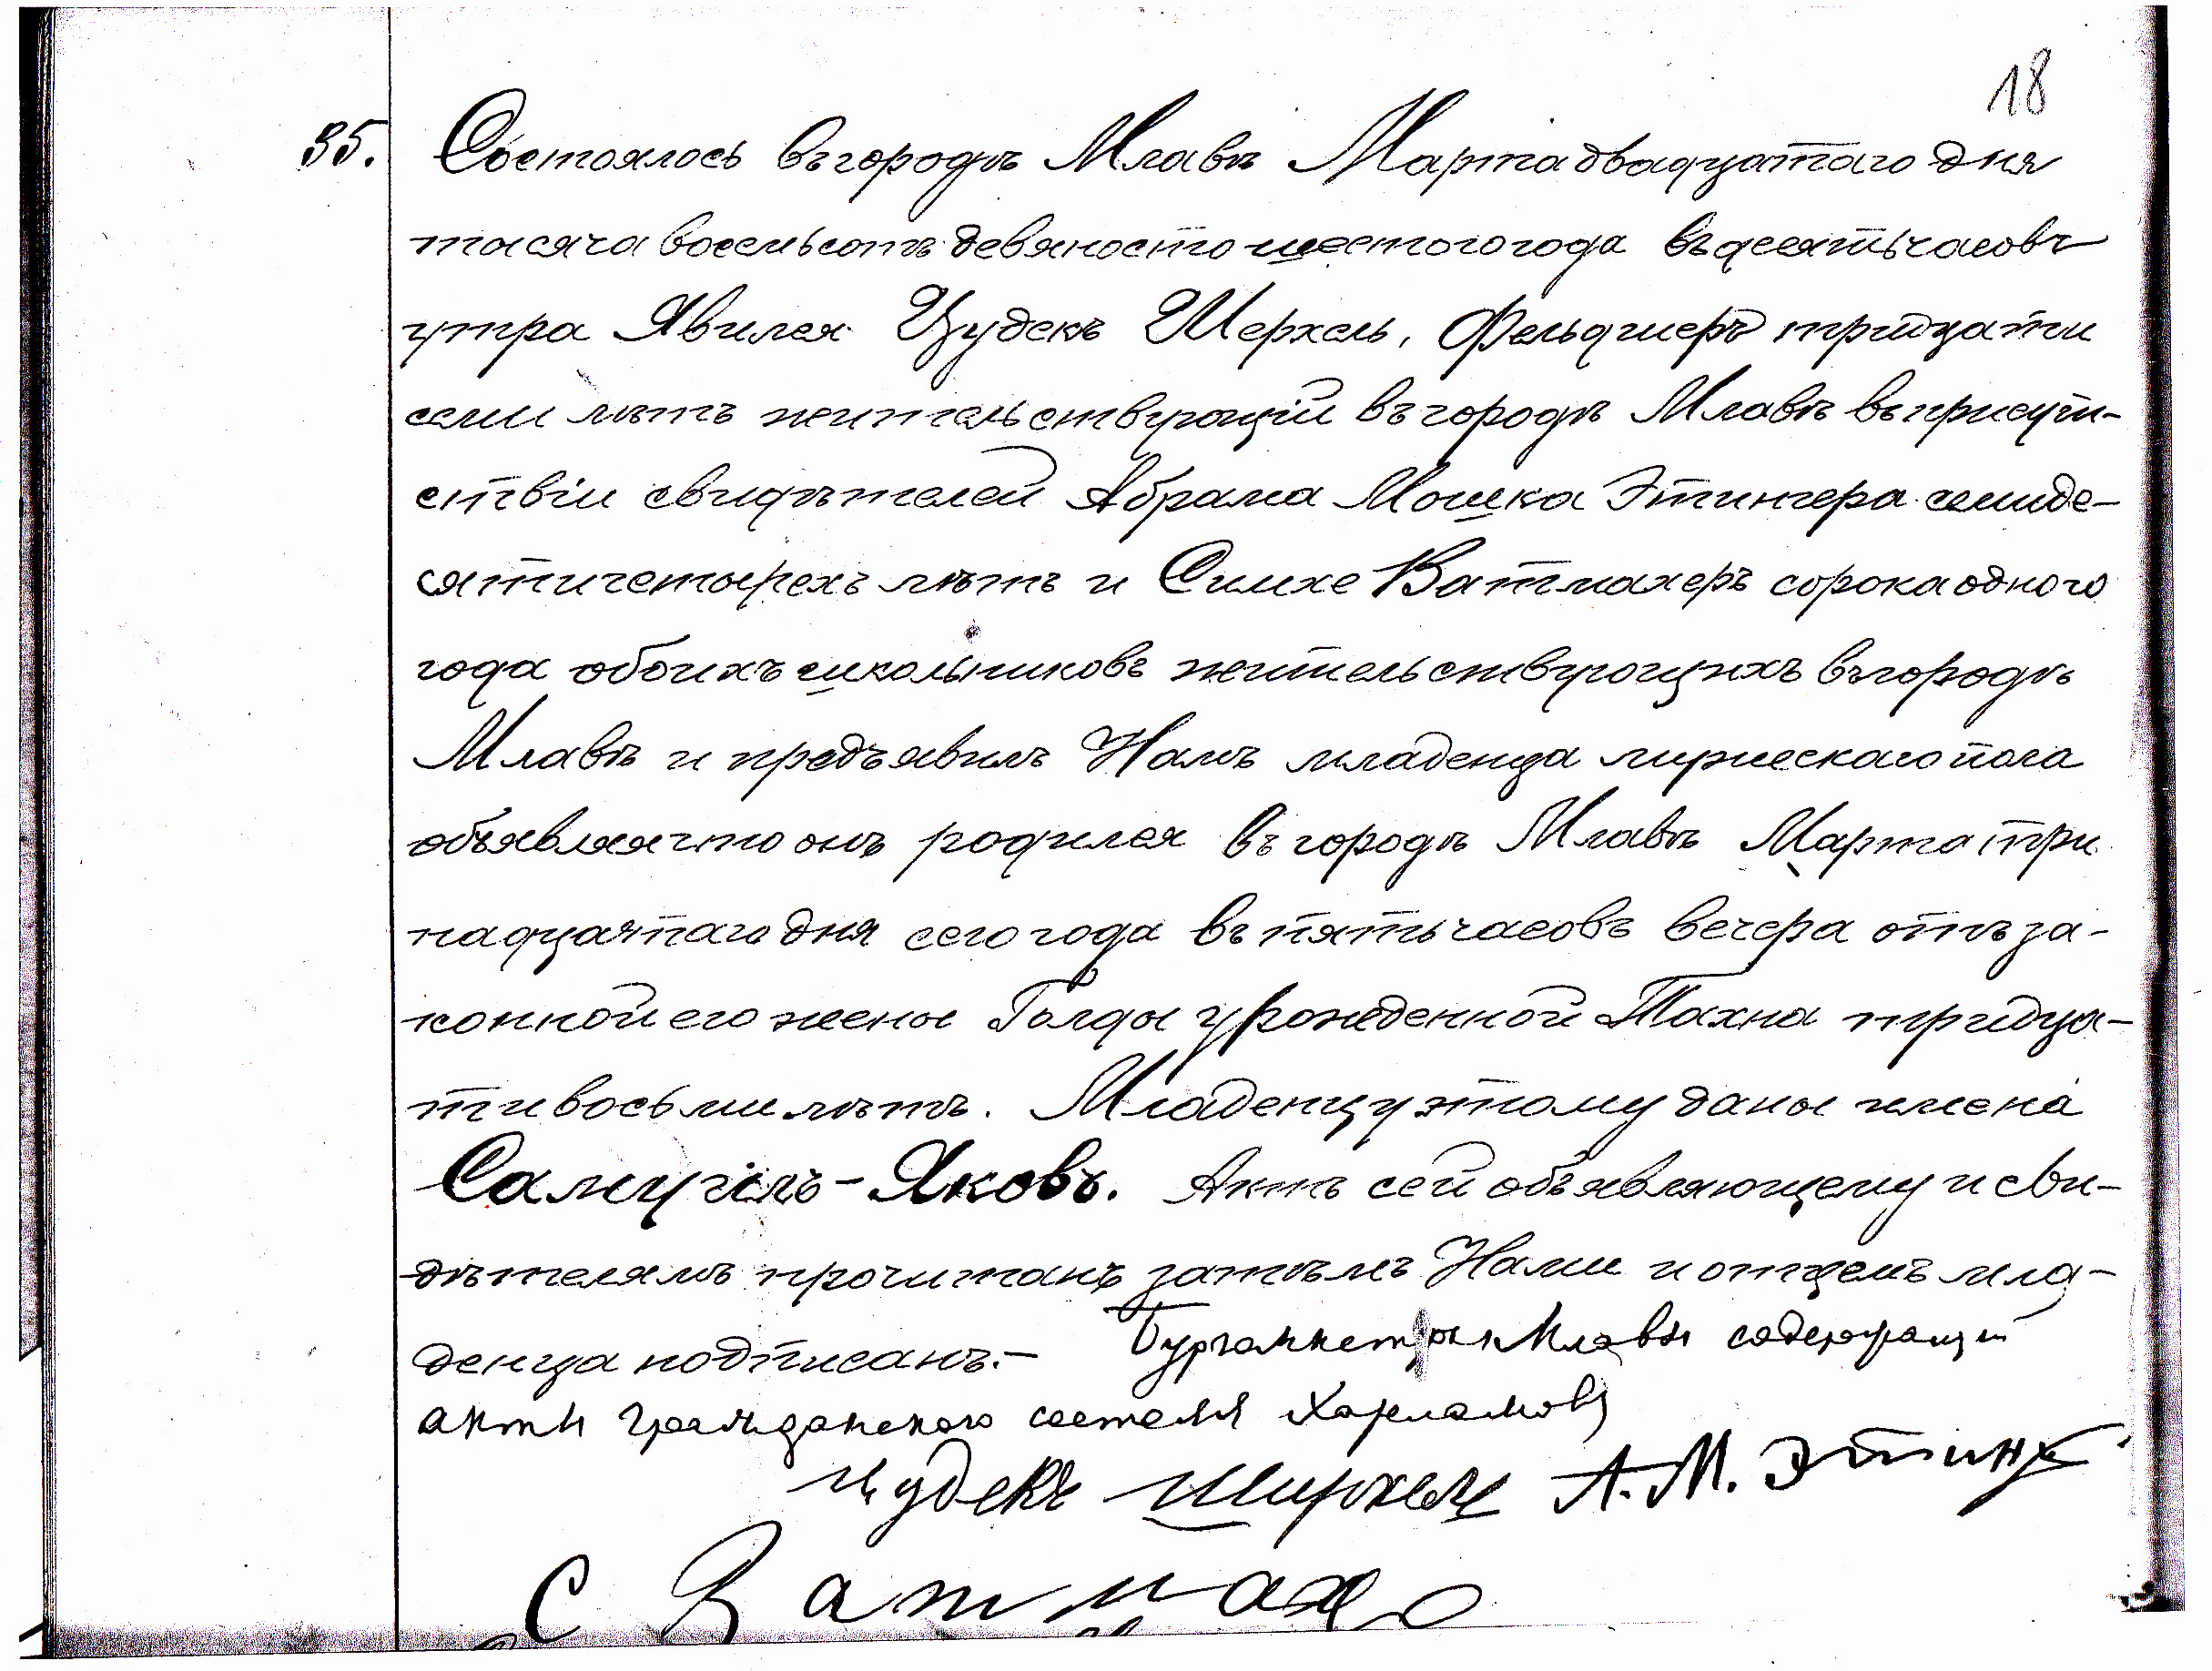 18
35. Состоялось въ городѣ Млавѣ Марта двадцатаго дня
тысяча восемьсотъ девяносто шестого года въ десять часовъ
утра Явился Цудекъ Шерхель, Фельдшеръ тридцати
семи лѣтъ жительствующій въ городѣ Млавѣ въ присут-
ствіи свидѣтелей Абрама Мошка Этингера семиде-
сяти четырехъ лѣтъ и Симхе Ватмахеръ сорока одного
года обоихъ школьниковъ жительствующихъ въ городѣ
Млавѣ и предъявилъ Намъ младенца мужескаго пола
объявляя что онъ родился въ городѣ Млавѣ Марта три
надцатаго дня сего года въ пять часовъ вечера отъ за-
конной его жены Голды урожденной Тахна тридца-
ти восьми лѣтъ. Младенцу этому даны имена
Самуилъ-Яковъ. Актъ сей объявляющему и сви-
дѣтелямъ прочитанъ затѣмъ Нами и отцемъ мла-
денца подписанъ.- Бургомистръ г. Млавы содержащій
акты гражданскаго состоянія Харламовъ
Цудекъ Ширхель А. М. Этинг
С Ватмах